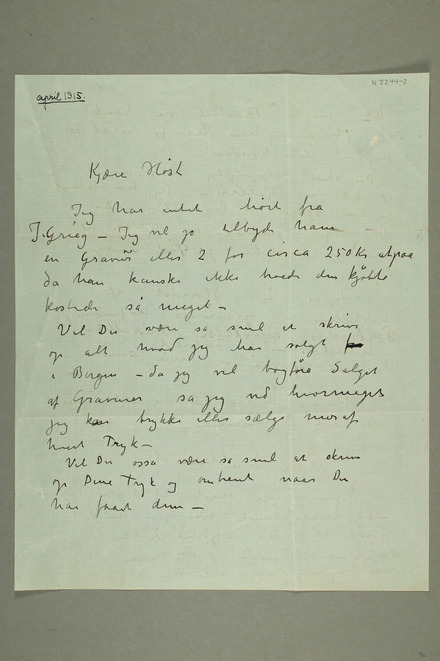 N 3244-2
april 1915.
Kjære Høst
Jeg har intet hørt fra
J. Grieg – Jeg vil jo tilbyde ham
en Gravüre eller 2 for circa 250 Kr
da han kanske ikke troede den kjøbte
kostede så meget –
Vil Du være så snil at skrive
op alt hvad jeg har solgt
i Bergen – da jeg vil bogføre Salget
af Gravurer så jeg ved hvormeget
jeg kan trykke eller sælge mer af
hvert Tryk –
Vil Du osså være så snil at skrive
op Dine Tryk og omtrent naar Du
har faaet dem –